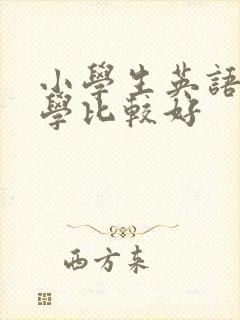 小學生英語
學比較好
西方来